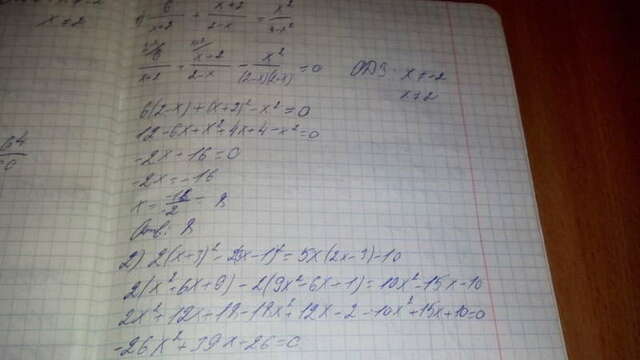 x ≠ 2
1) 6/(x+2) + (x+2)/(2-x) = x²/(4-x²)
6/(x+2) + (x+2)/(2-x) - x²/((2-x)(2+x)) = 0 ОДЗ: x ≠ -2
x ≠ 2
6(2-x)+(x+2)²-x²=0
12-6x+x²+4x+4-x²=0
64
-2x+16=0
-2x=-16
x = -16/-2 = 8
Отв: 8
2) 2(x+3)²-2(3x-1)²=5x(2x-3)-10
2(x²+6x+9)-2(9x²-6x+1)=10x²-15x-10
2x²+12x+18-18x²+12x-2-10x²+15x+10=0
-26x²+39x+26=0